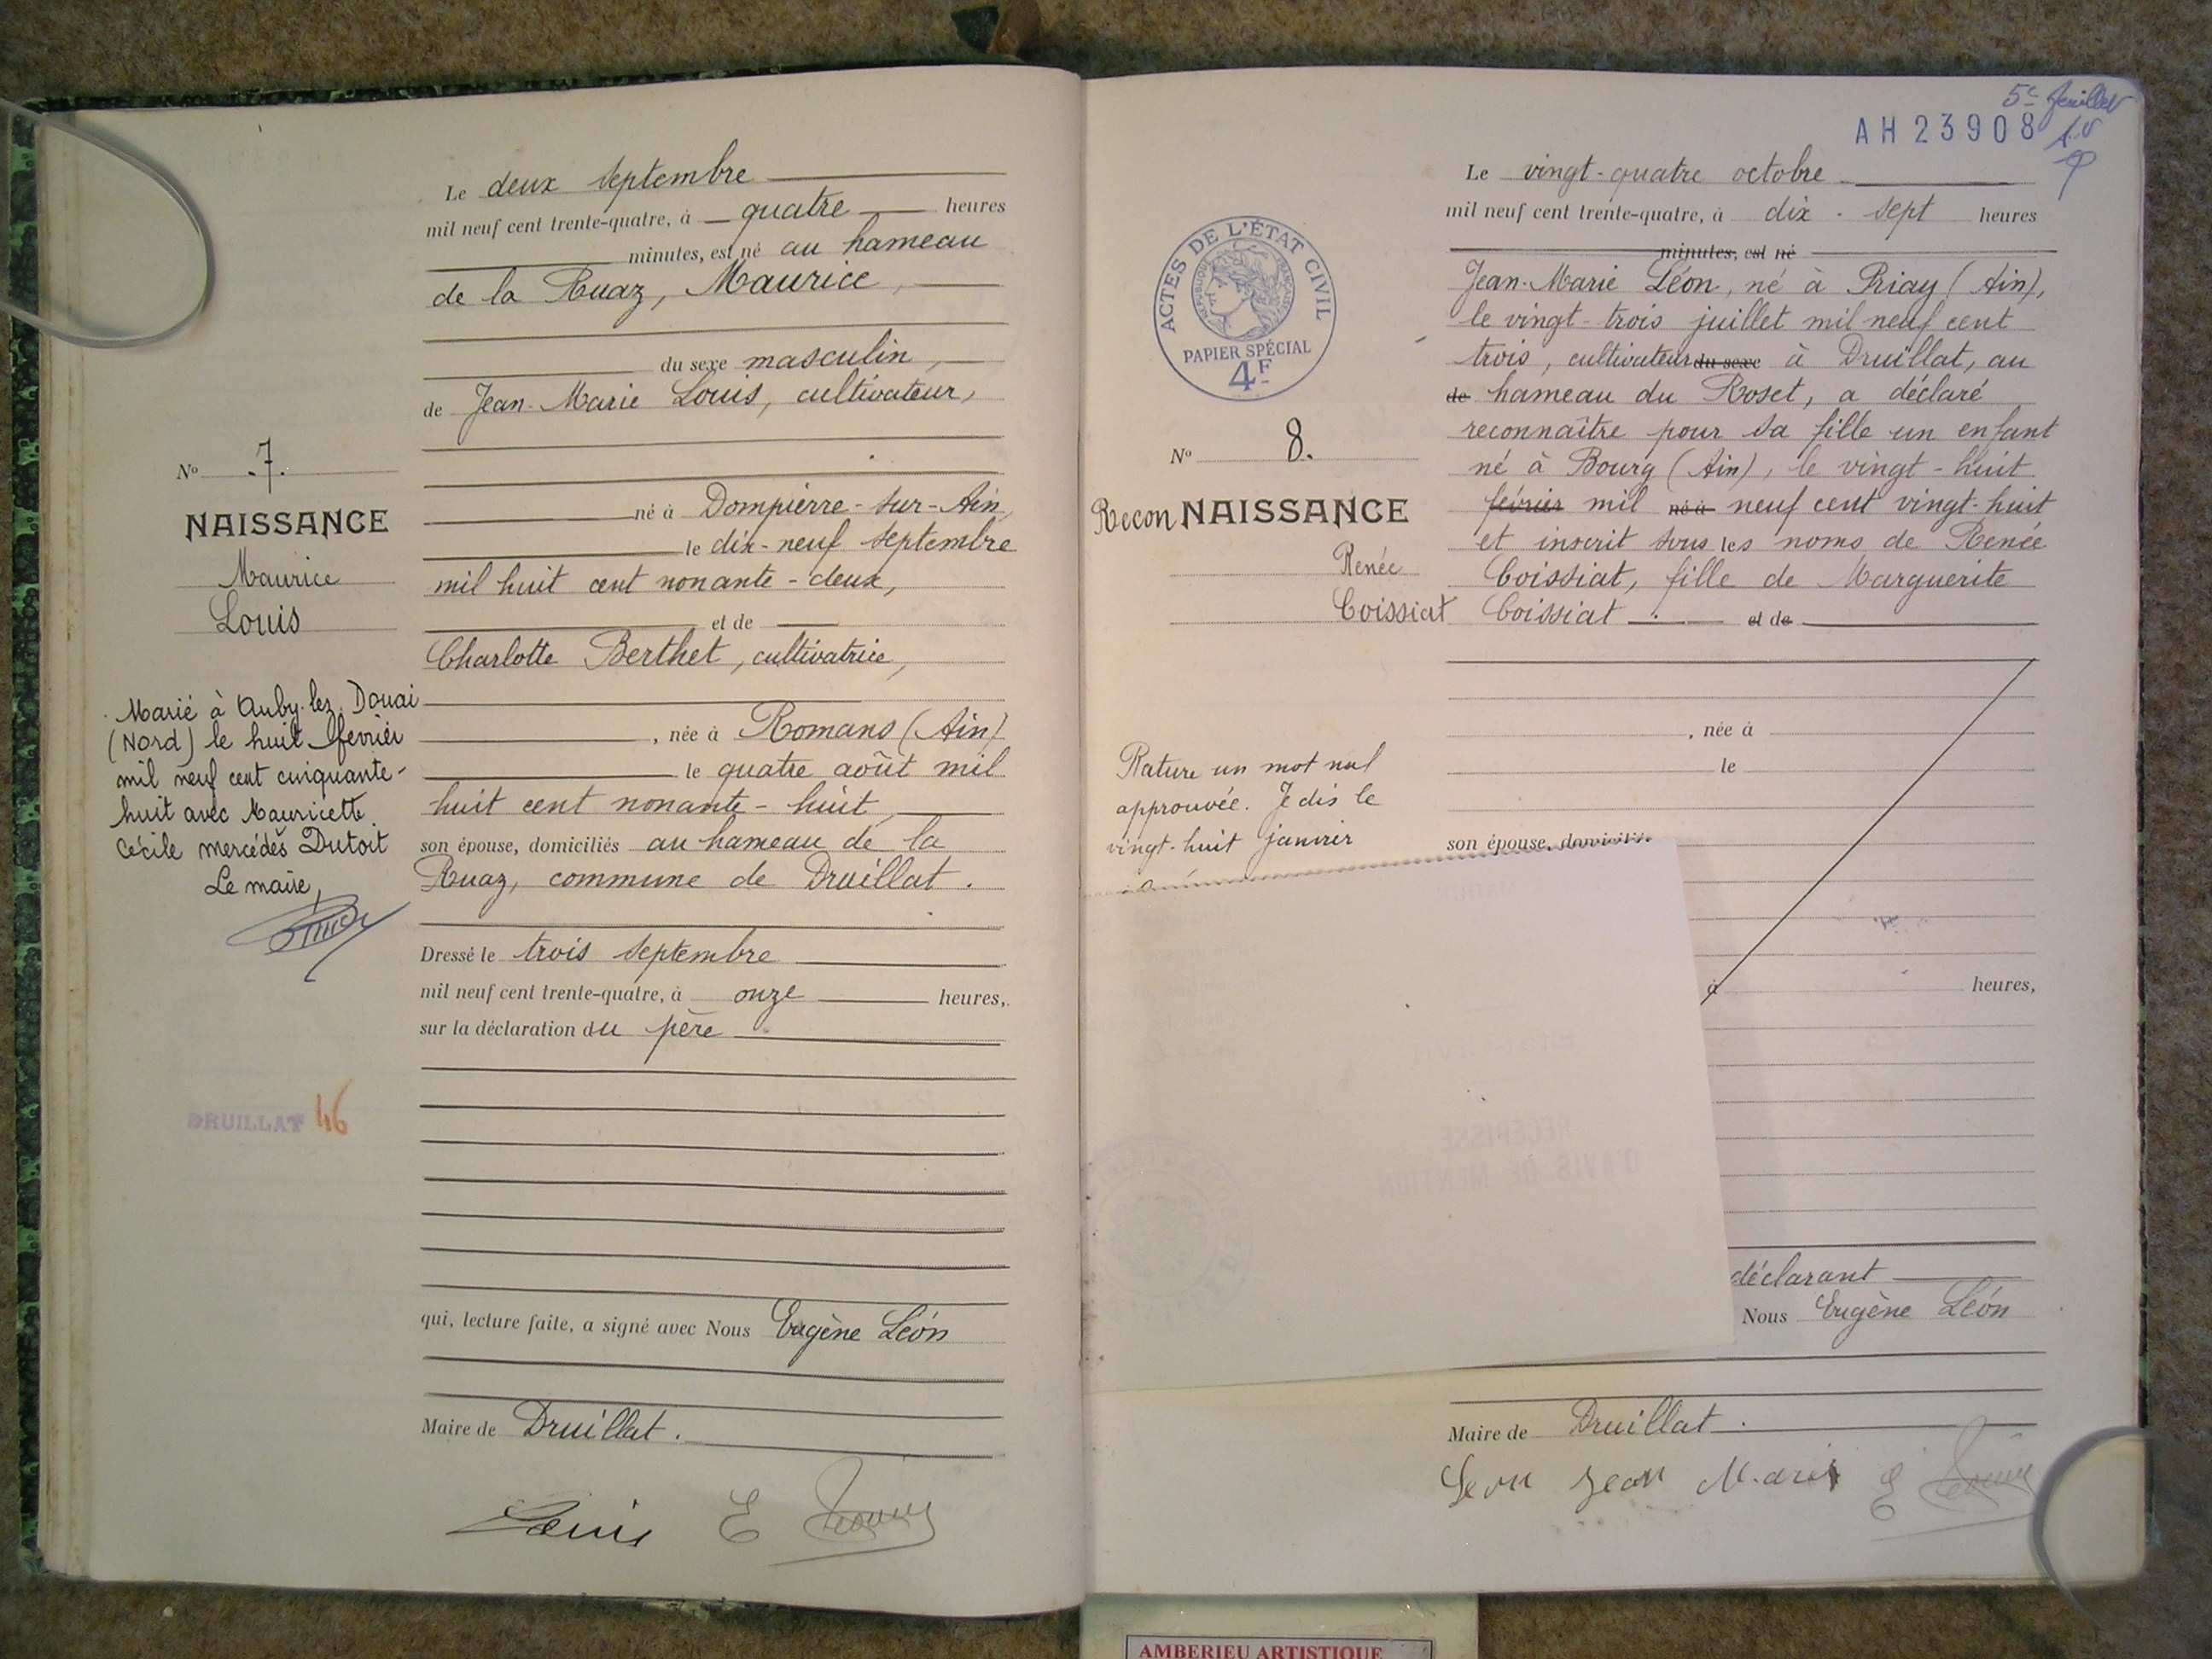 Le deux septembre
mil neuf cent trente-quatre, à quatre heures
minutes, est né au hameau
de la Ruaz, Maurice,
du sexe masculin,
de Jean-Marie Louis, cultivateur,
né à Dompierre-sur-Ain,
le dix-neuf septembre
mil huit cent nonante-deux,
et de
Charlotte Berthet, cultivatrice,
, née à Romans (Ain)
le quatre août mil
huit cent nonante-huit,
son épouse, domiciliés au hameau de la
Ruaz, commune de Druillat.
Dressé le trois septembre
mil neuf cent trente-quatre, à onze heures,
sur la déclaration du père
qui, lecture faite, a signé avec Nous Eugène Léon
Maire de Druillat.
Louis E
No 7.
NAISSANCE
Maurice
Louis
Marié à Auby-lez-Douai
(Nord) le huit février
mil neuf cent cinquante-
huit avec Mauricette
Cécile Mercédès Dutoit
Le maire,
DRUILLAT 46
5e feuillet
AH 23908
ACTES DE L'ÉTAT CIVIL
PAPIER SPÉCIAL
4F
No 8.
Recon NAISSANCE
Renée
Coissiat
Rature un mot nul
approuvée. Je dis le
vingt-huit janvier
Le vingt-quatre octobre
mil neuf cent trente-quatre, à dix-sept heures
minutes, est né
Jean-Marie Léon, né à Priay (Ain),
le vingt-trois juillet mil neuf cent
trois, cultivateur du sexe à Druillat, au
de hameau du Roset, a déclaré
reconnaître pour sa fille un enfant
né à Bourg (Ain), le vingt-huit
février mil né à neuf cent vingt-huit
et inscrit sous les noms de Renée
Coissiat, fille de Marguerite
Coissiat et de
, née à
le
son épouse, domiciliés
à heures,
RÉCÉPISSÉ
D'AVIS DE MENTION
déclarant
Nous Eugène Léon
Maire de Druillat.
Leon Jean Marie E
AMBERIEU ARTISTIQUE